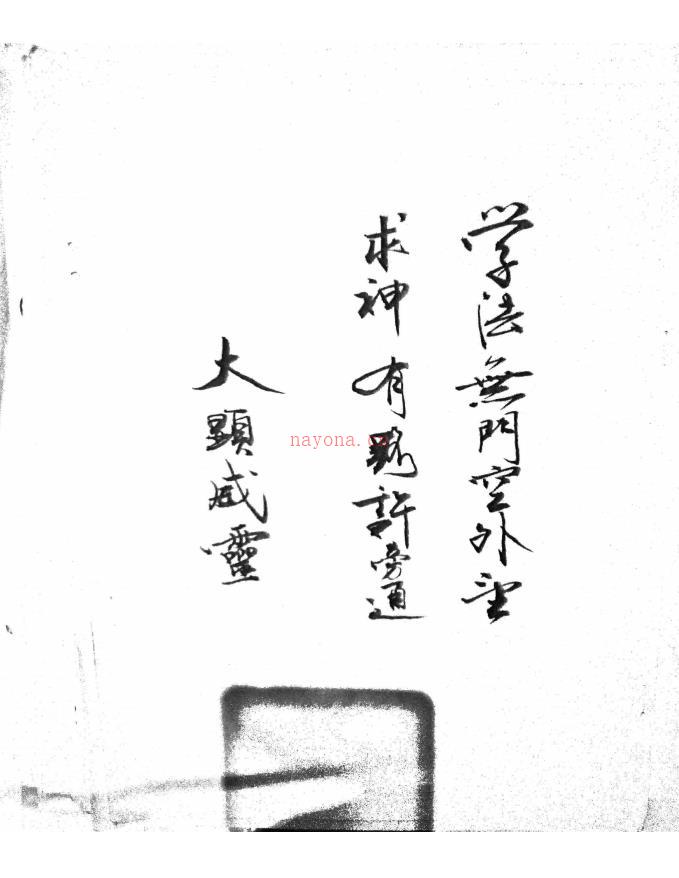 学法無門空外望
求神有許旁通
大顯威靈
nayona.cn